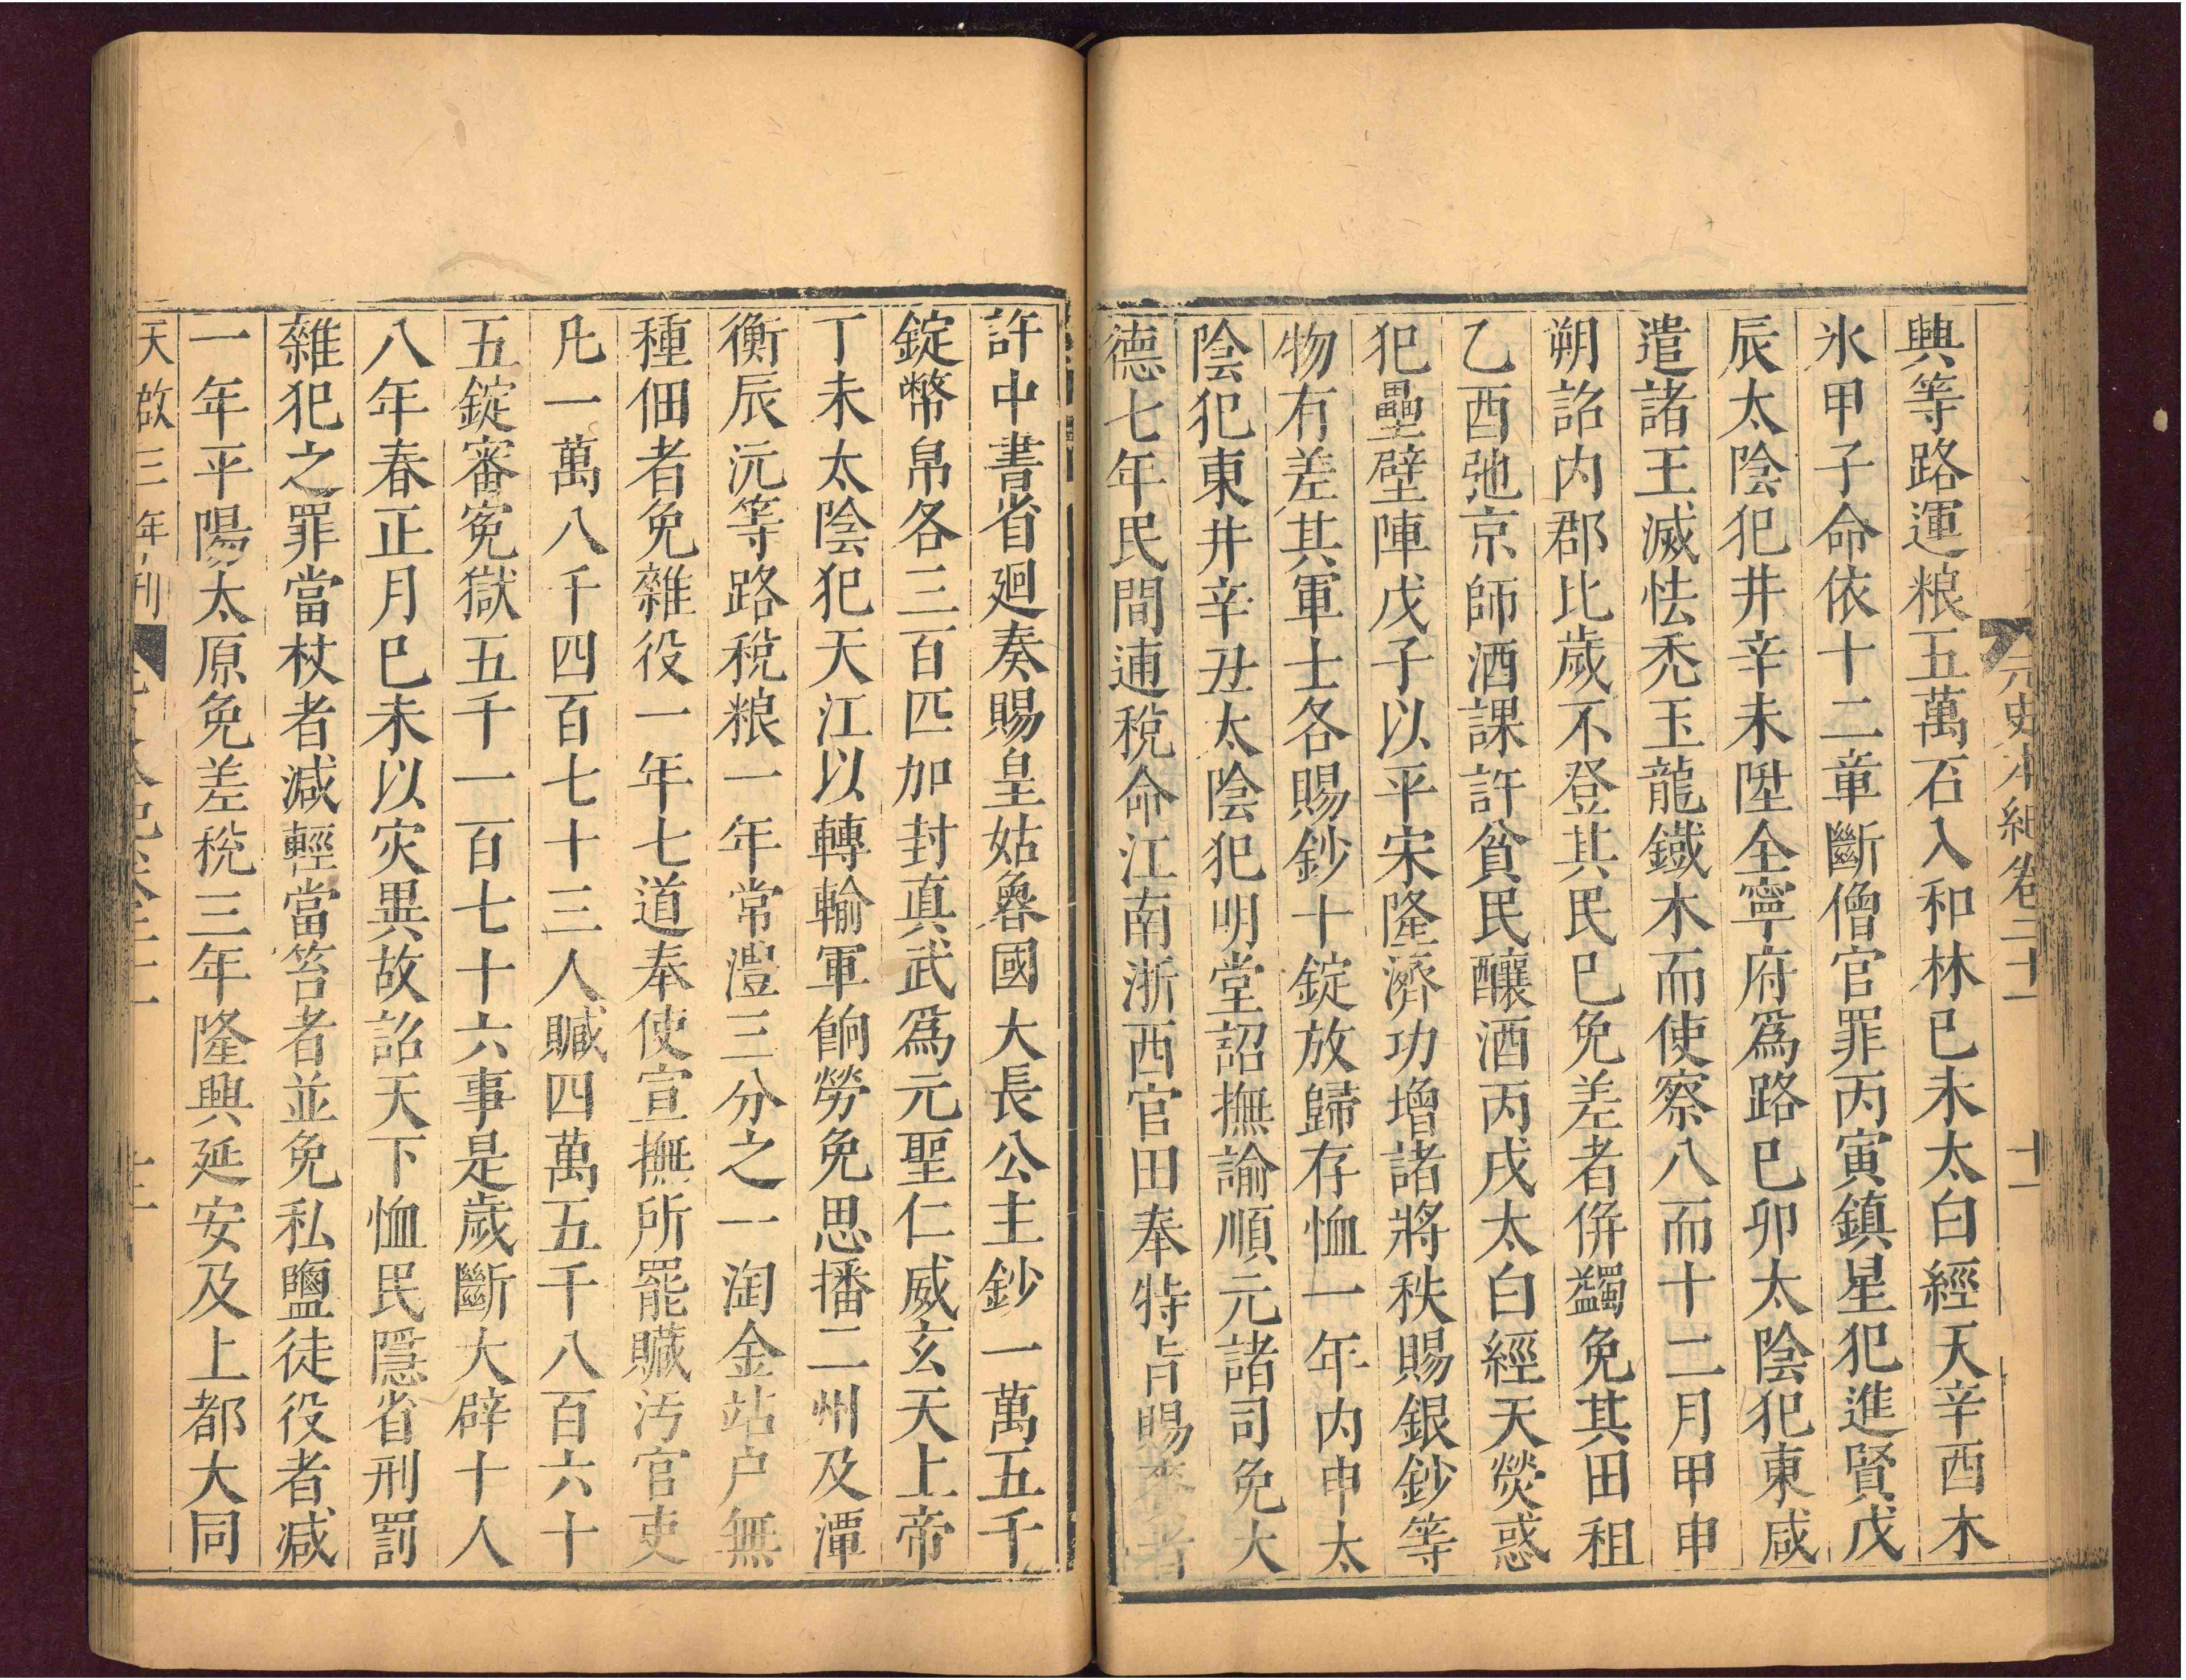 元史本紀卷二十一
十一
興等路運粮五萬石入和林己未太白經天辛酉木
氷甲子命依十二章斷僧官罪丙寅鎮星犯進賢戊
辰太陰犯井辛未陞全寧府爲路巳卯太陰犯東咸
遣諸王滅怯禿玉龍鐵木而使察八而十二月甲申
朔詔内郡比歲不登其民巳免差者併蠲免其田租
乙酉弛京師酒課許貧民釀酒丙戌太白經天熒惑
犯壘壁陣戊子以平宋隆濟功增諸將秩賜銀鈔等
物有差其軍士各賜鈔十錠放歸存恤一年内申太
陰犯東井辛丑太陰犯明堂詔撫諭順元諸司免大
德七年民間逋稅命江南浙西官田奉特旨賜賚者
許中書省廻奏賜皇姑魯國大長公主鈔一萬五千
錠幣帛各三百匹加封真武爲元聖仁威玄天上帝
丁未太陰犯天江以轉輸軍餉勞免思播二州及潭
衡辰沅等路稅粮一年常澧三分之一淘金站户無
種佃者免雜役一年七道奉使宣撫所罷贓汚官吏
凡一萬八千四百七十三人贓四萬五千八百六十
五錠審寃獄五千一百七十六事是歲斷大辟十人
八年春正月巳未以灾異故詔天下恤民隱省刑罰
雜犯之罪當杖者減輕當笞者並免私鹽徒役者減
一年平陽太原免差稅三年隆興延安及上都大同
天啟三年刊